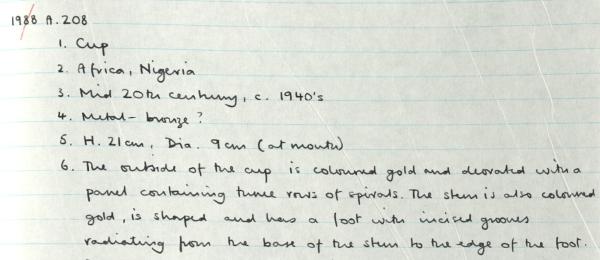 1988 A.208
1. Cup
2. Africa, Nigeria
3. Mid 20th century, c. 1940's
4. Metal - bronze ?
5. H. 21cm, Dia. 9cm (at mouth)
6. The outside of the cup is coloured gold and decorated with a
panel containing three rows of spirals. The stem is also coloured
gold, is shaped and has a foot with incised grooves
radiating from the base of the stem to the edge of the foot.